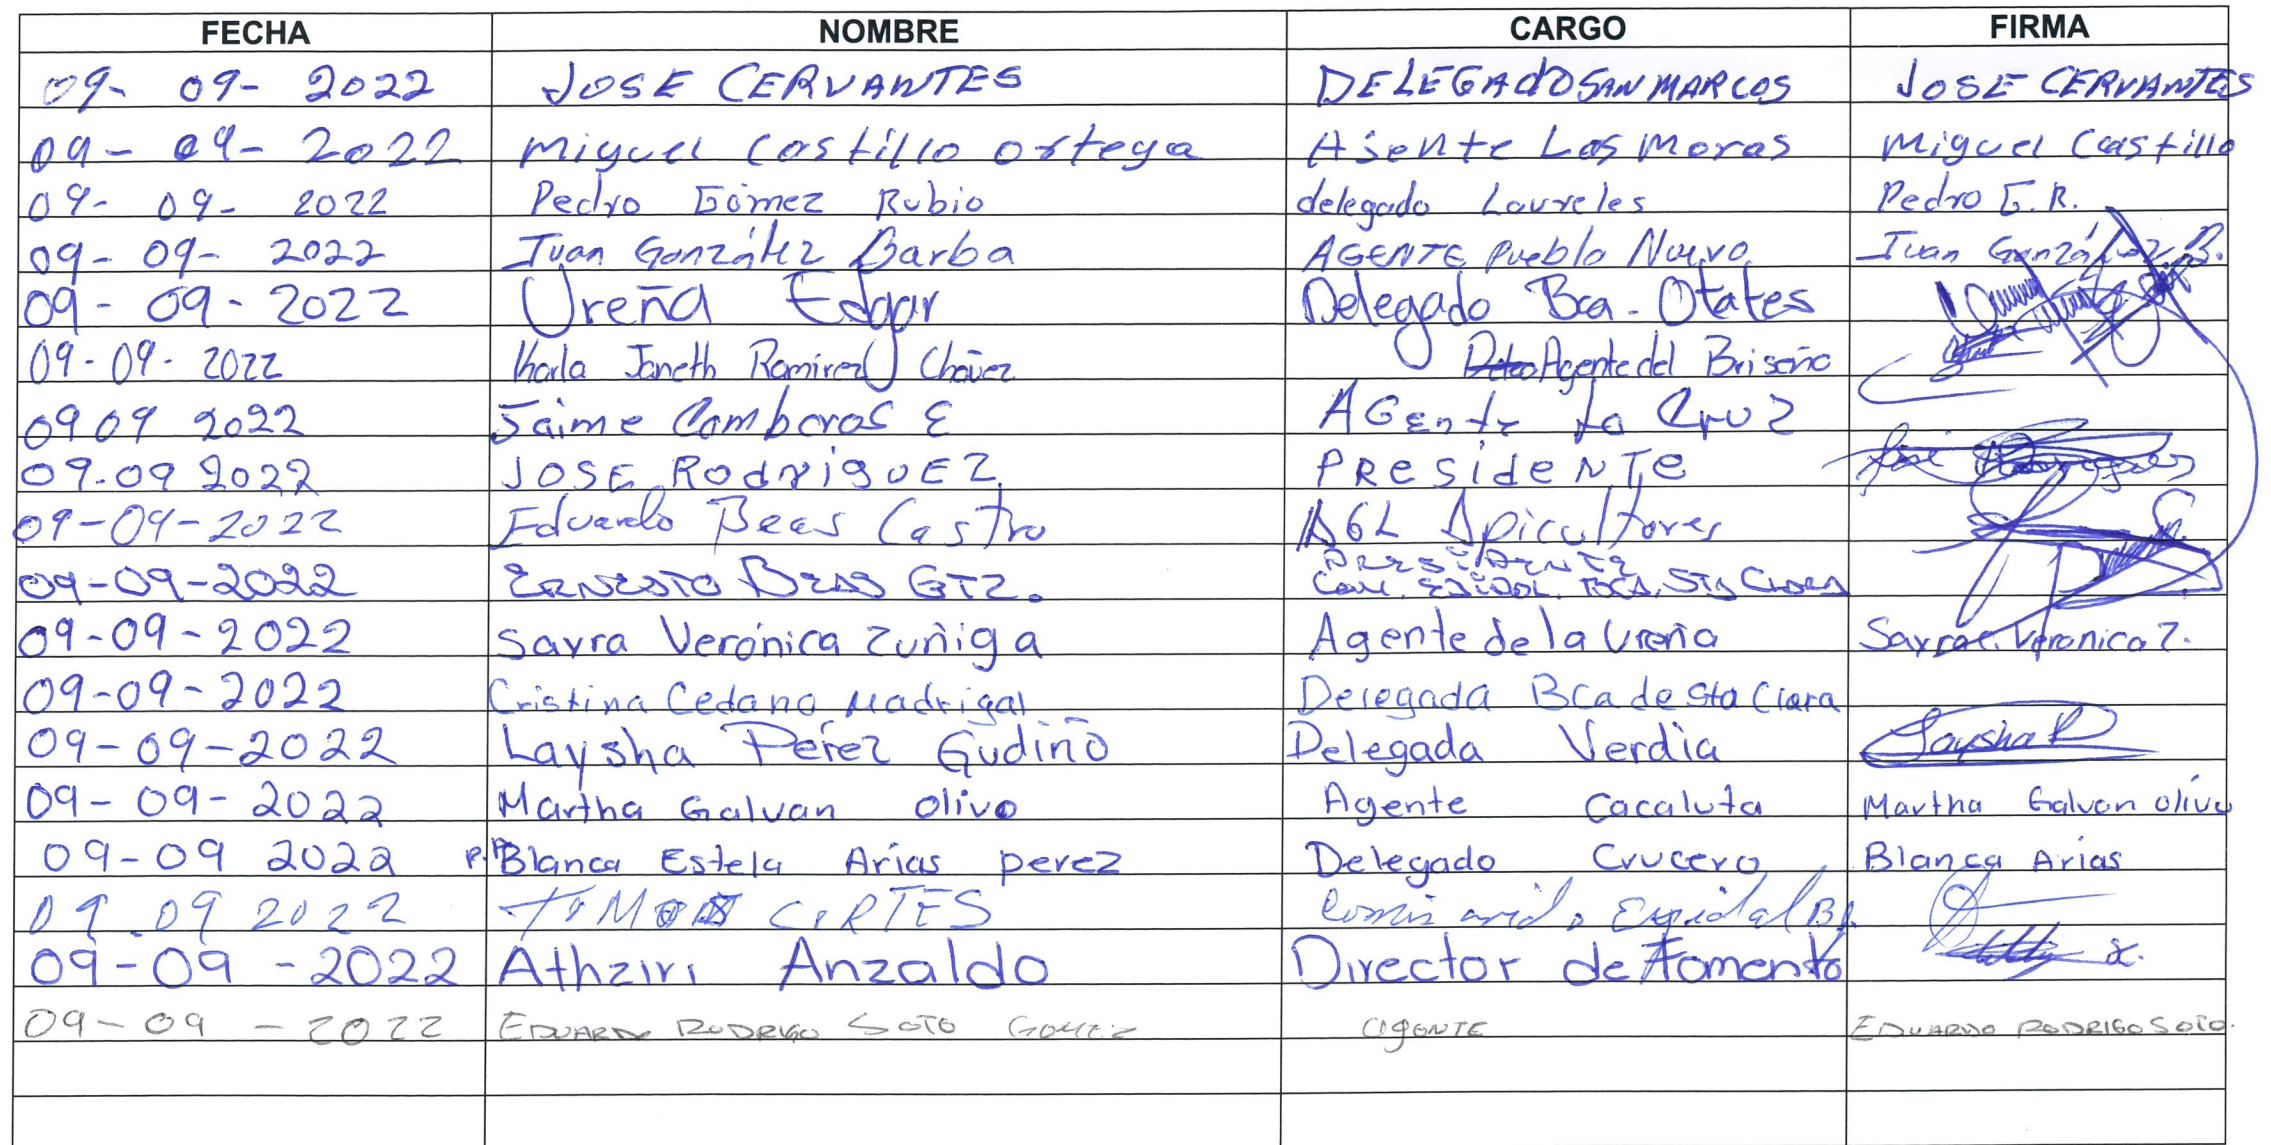 FECHA NOMBRE CARGO FIRMA
09- 09- 2022 JOSE CERVANTES DELEGADO SAN MARCOS JOSE CERVANTES
09- 09- 2022 Miguel Castillo Ortega Ajente Las Moras Miguel Castillo
09- 09- 2022 Pedro Gómez Rubio delegado Laureles Pedro G.R.
09- 09- 2022 Juan González Barba AGENTE Pueblo Nuevo Juan González B.
09- 09-2022 Ureña Edgar Delegado Bca. Otates
09-09-2022 Karla Janeth Ramirez Chávez Agente del Briseño
09 09 2022 Jaime Camberos E AGente La Cruz
09-09 2022 JOSE RodriguEZ PResideNTe
09-09-2022 Eduardo Beas Castro AGL Apicultores
09-09-2022 ERNESTO BEAS GTZ. PRESIDENTE
COM. EJIDAL. TOCA. STA CLARA
09-09-2022 Sayra Verónica Zuñiga Agente de la Ureña Sayra Veronica Z.
09-09-2022 Cristina Cedano Madrigal Delegada Bca de Sta Clara
09-09-2022 Laysha Pérez Gudiño Delegada Verdia Laysha P
09-09-2022 Martha Galvan Olivo Agente Cacaluta Martha Galvan Olivo
09-09 2022 P.A Blanca Estela Arias perez Delegado Crucero Blanca Arias
09 09 2022 CORTES
09-09 -2022 Athziri Anzaldo Director de Fomento
09-09 -2022 EDUARDO RODRIGO SOTO GOMEZ agente EDUARDO RODRIGO SOTO.